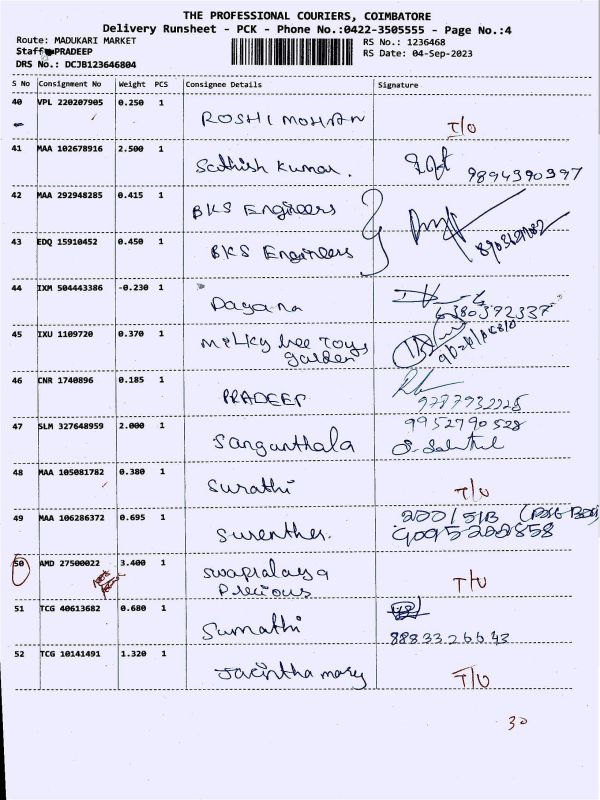 THE PROFESSIONAL COURIERS, COIMBATORE
Delivery Runsheet - PCK - Phone No.:0422-3505555 - Page No.:4
Route: MADUKARI MARKET RS No.: 1236468
Staff PRADEEP RS Date: 04-Sep-2023
DRS No.: DCJB123646804
S No Consignment No Weight PCS Consignee Details Signature
40 VPL 220207905 0.250 1
ROSHI MOHAN T/O
41 MAA 102678916 2.500 1
Sathish Kumar. 9894390397
42 MAA 292948285 0.415 1
BKS Engineers
43 EDQ 15910452 0.450 1
BKS Engineers
44 IXM 504443386 -0.230 1
Dayana 6380392337
45 IXU 1109720 0.370 1
Milky bee Toys
garden
46 CNR 1740896 0.185 1
PRADEEP 9787932225
47 SLM 327648959 2.000 1 9952790528
Sanganthala
48 MAA 105081782 0.380 1
Surathi T/O
49 MAA 106286372 0.695 1 200/51B
Surenther. 9095200858
50 AMD 27500022 3.400 1
Swapralaya
Precious T/U
51 TCG 40613682 0.680 1
Sumathi 8883326643
52 TCG 10141491 1.320 1
Jacintha mary T/U
30